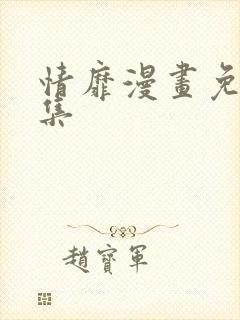 情靡漫畫免
集
趙寶軍